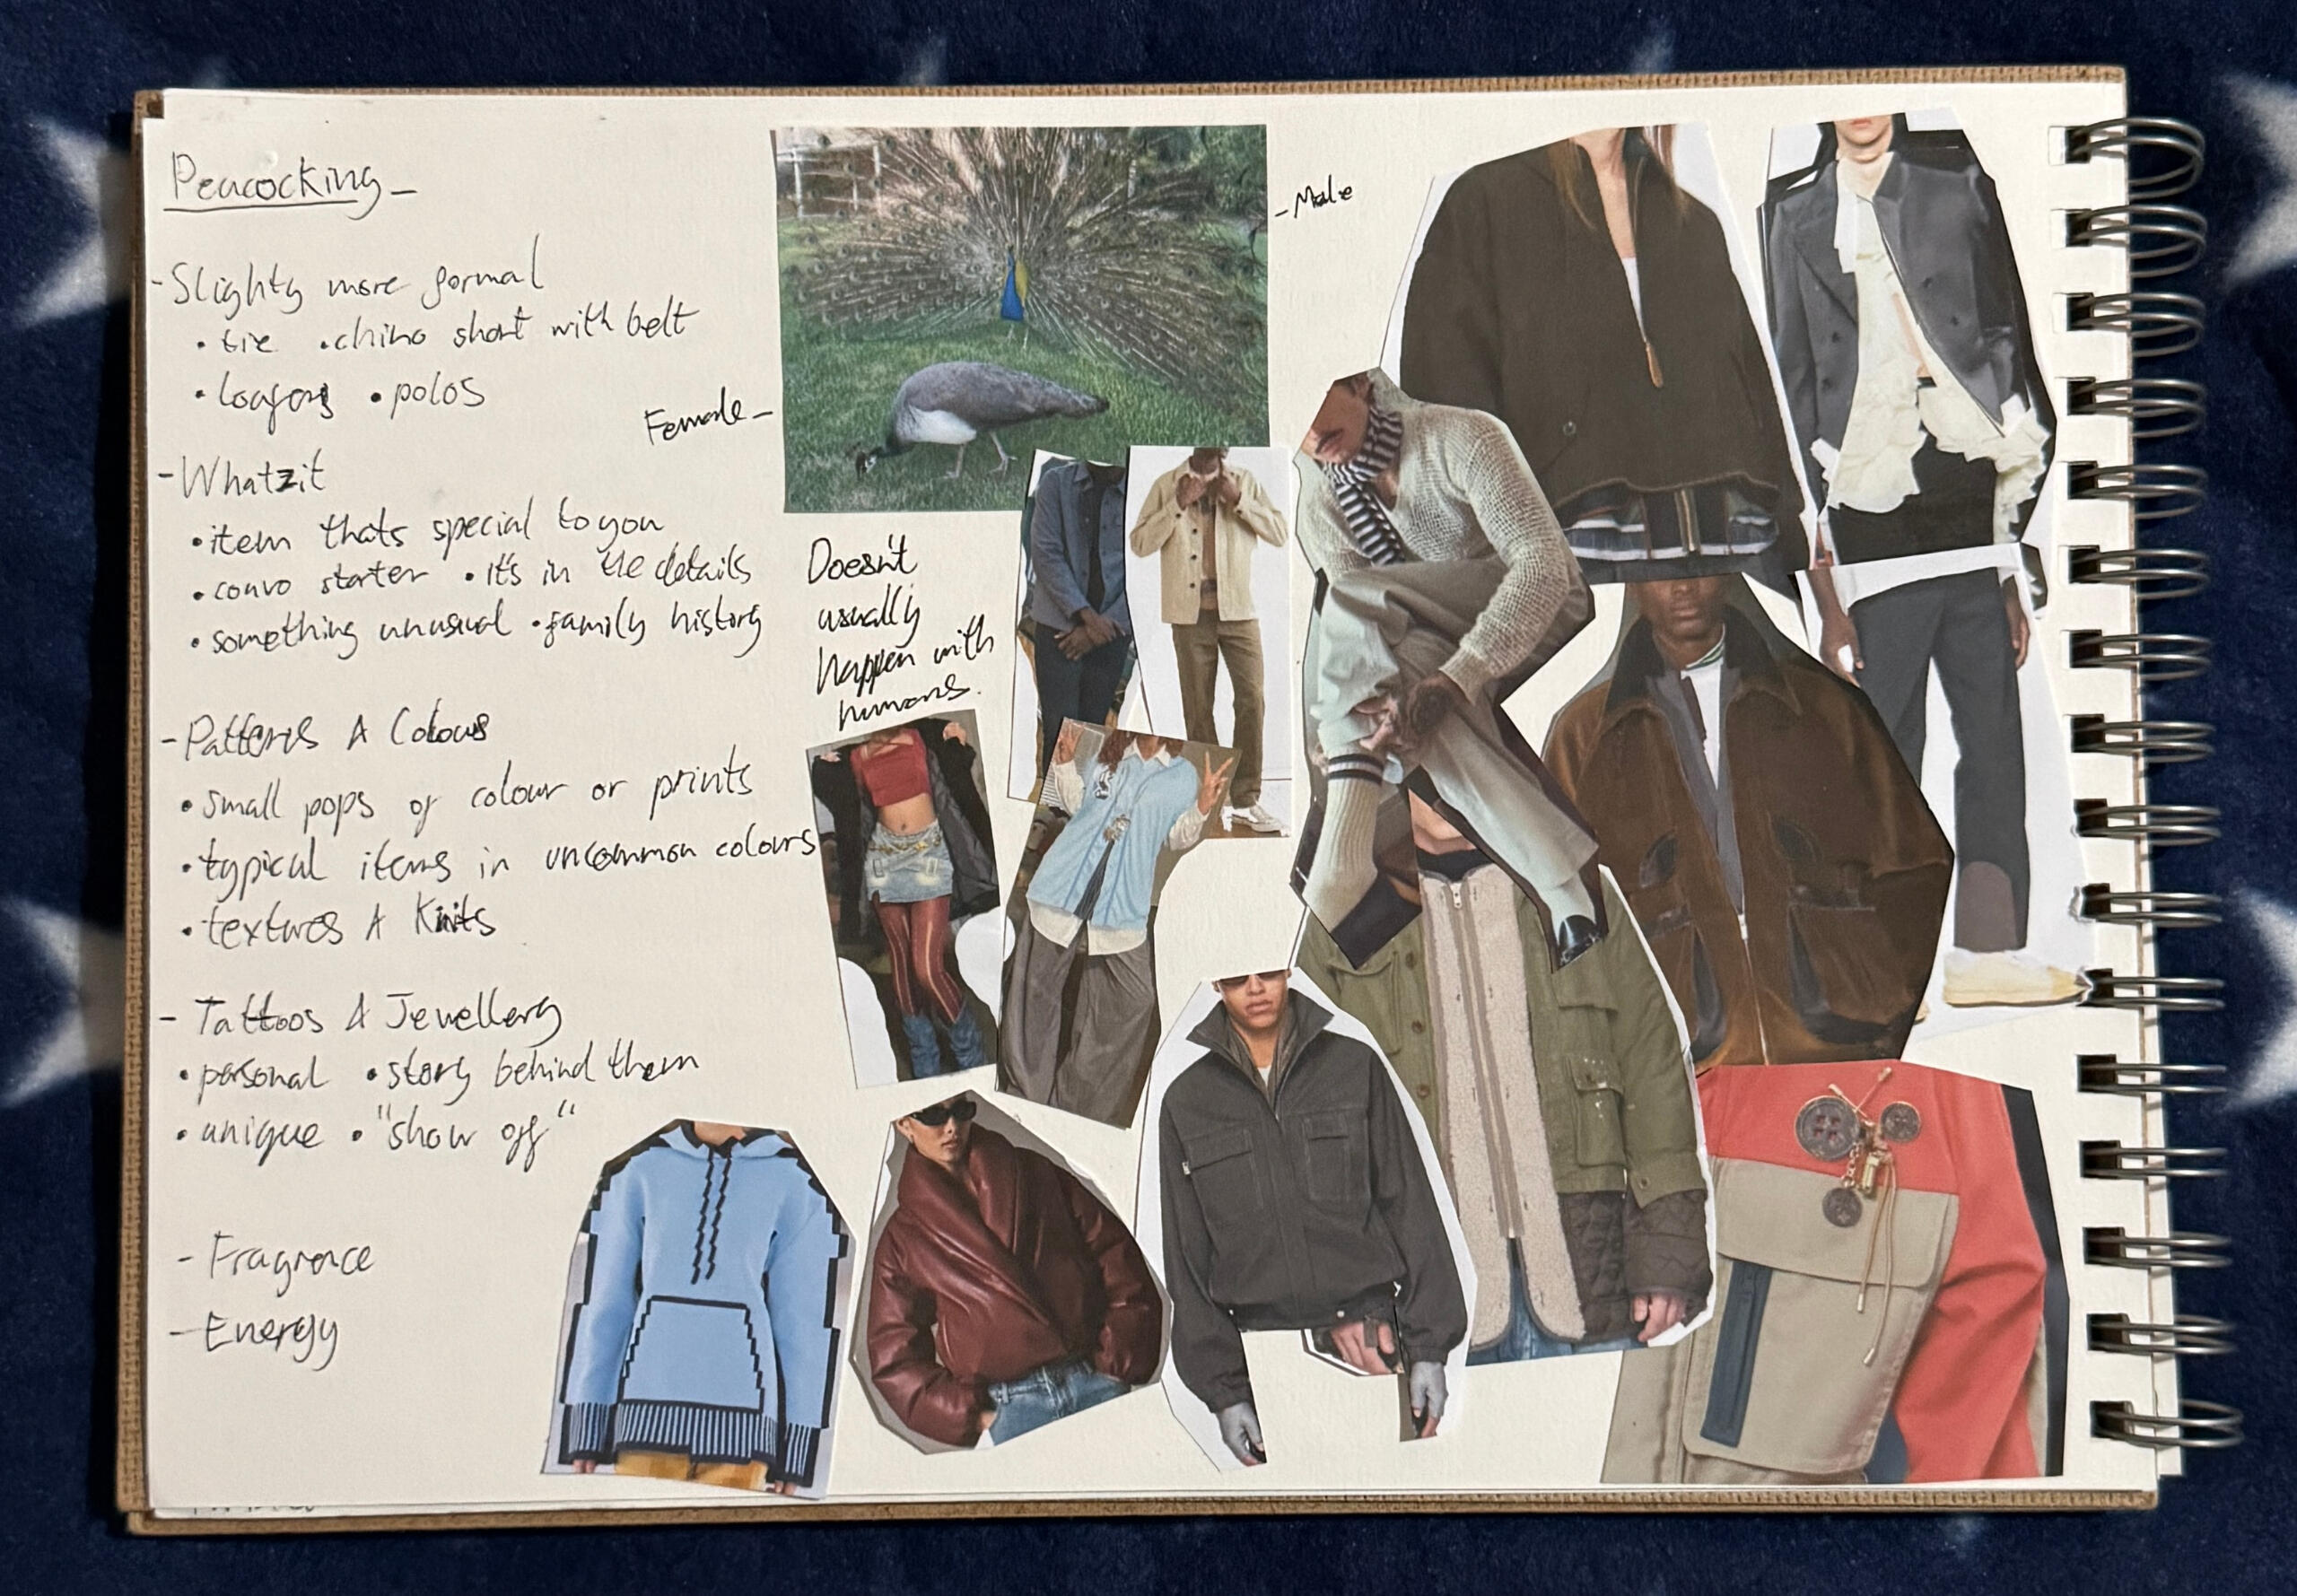 Peacocking-
- Slighty more formal
• tie • chino short with belt
• loafers • polos
- Whatzit
• item thats special to you
• convo starter • it's in the details
• something unusual • family history
- Patterns & Colours
• small pops of colour or prints
• typical items in uncommon colours
• textures & Knits
- Tattoos & Jewellery
• personal • story behind them
• unique • "show off"
- Fragrence
- Energy
- Male
Female -
Doesn't
usually
happen with
humans.